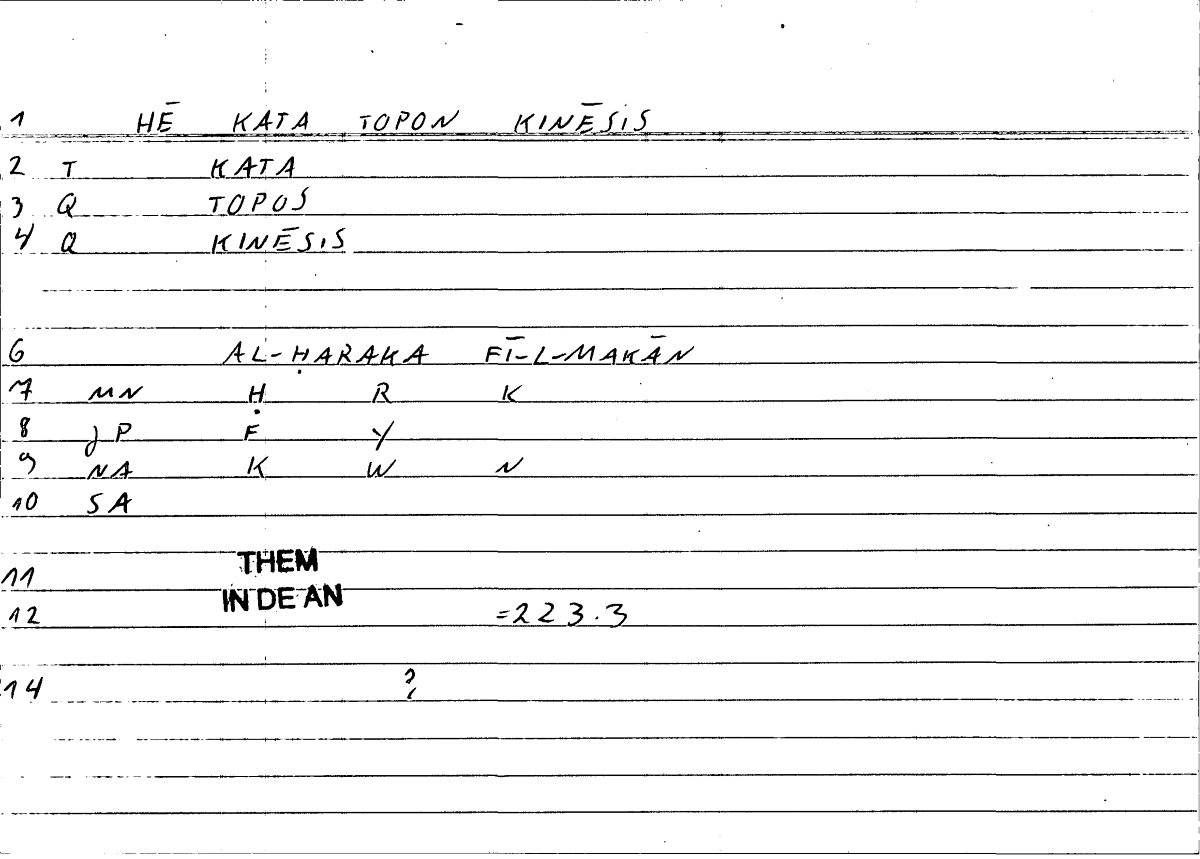 1 HĒ KATA TOPON KINĒSIS
2 T KATA
3 Q TOPOS
4 Q KINĒSIS
6 AL-ḤARAKA FĪ-L-MAKĀN
7 MN Ḥ R K
8 JP F Y
9 NA K W N
10 SA
11 THEM
12 IN DE AN =223.3
14 ?